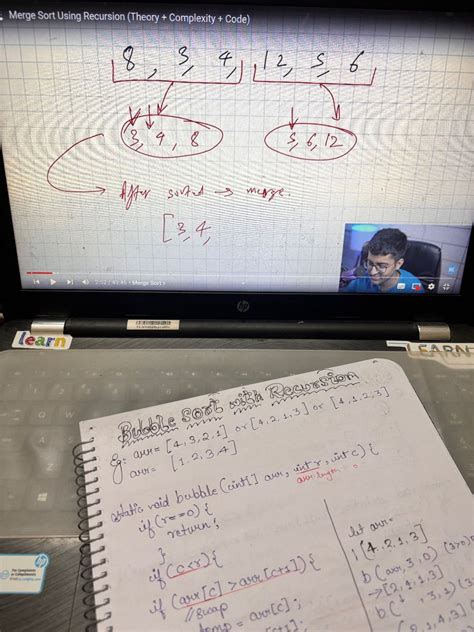 Merge Sort Using Recursion (Theory + Complexity + Code)
8, 3, 4, 12, 5, 6
3, 4, 8 5, 6, 12
After sorted → merge.
[3, 4,
Merge Sort
hp
learn
LEARN
Bubble sort with Recursion
Eg: arr = [4,3,2,1] or [4,2,1,3] or [4,1,2,3]
arr = [1,2,3,4]
static void bubble (int[] arr, int r, int c) {
arr.length
if (r==0) {
return;
}
if (c<r) {
if (arr[c] > arr[c+1]) {
//swap
temp = arr[c];
let arr =
[4,2,1,3]
b(arr,3,0)